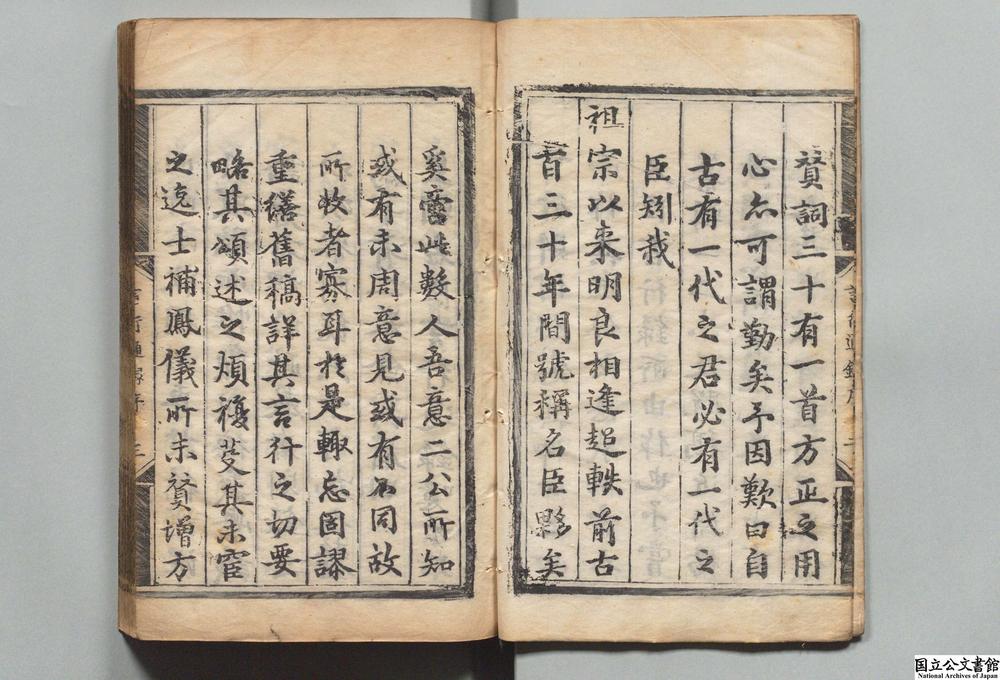 賛詞三十有一首方正之用
心亦可謂勤矣予因歎曰自
古有一代之君必有一代之
臣矧我
祖宗以来明良相逢超軼前古
百三十年間號稱名臣夥矣
奚啻此數人吾意二公所知
或有未周意見或有不同故
所收者寡耳於是輙忘固謬
重繕舊稿詳其言行之切要
略其頌述之煩複芟其未宦
之逸士補鳳儀所未賛增方
言行通錄序 二
言行通錄序 三
国立公文書館
National Archives of Japan